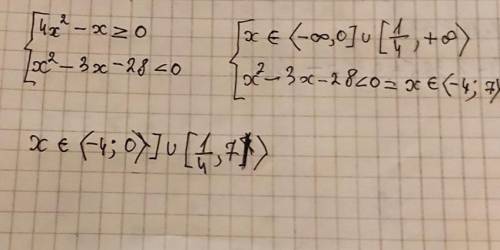 4x² - x ≥ 0
x² - 3x - 28 < 0
x ∈ ⟨-∞, 0] ∪ [1/4, +∞⟩
x² - 3x - 28 < 0 = x ∈ ⟨-4; 7⟩
x ∈ ⟨-4; 0⟩] ∪ [1/4, 7⟩